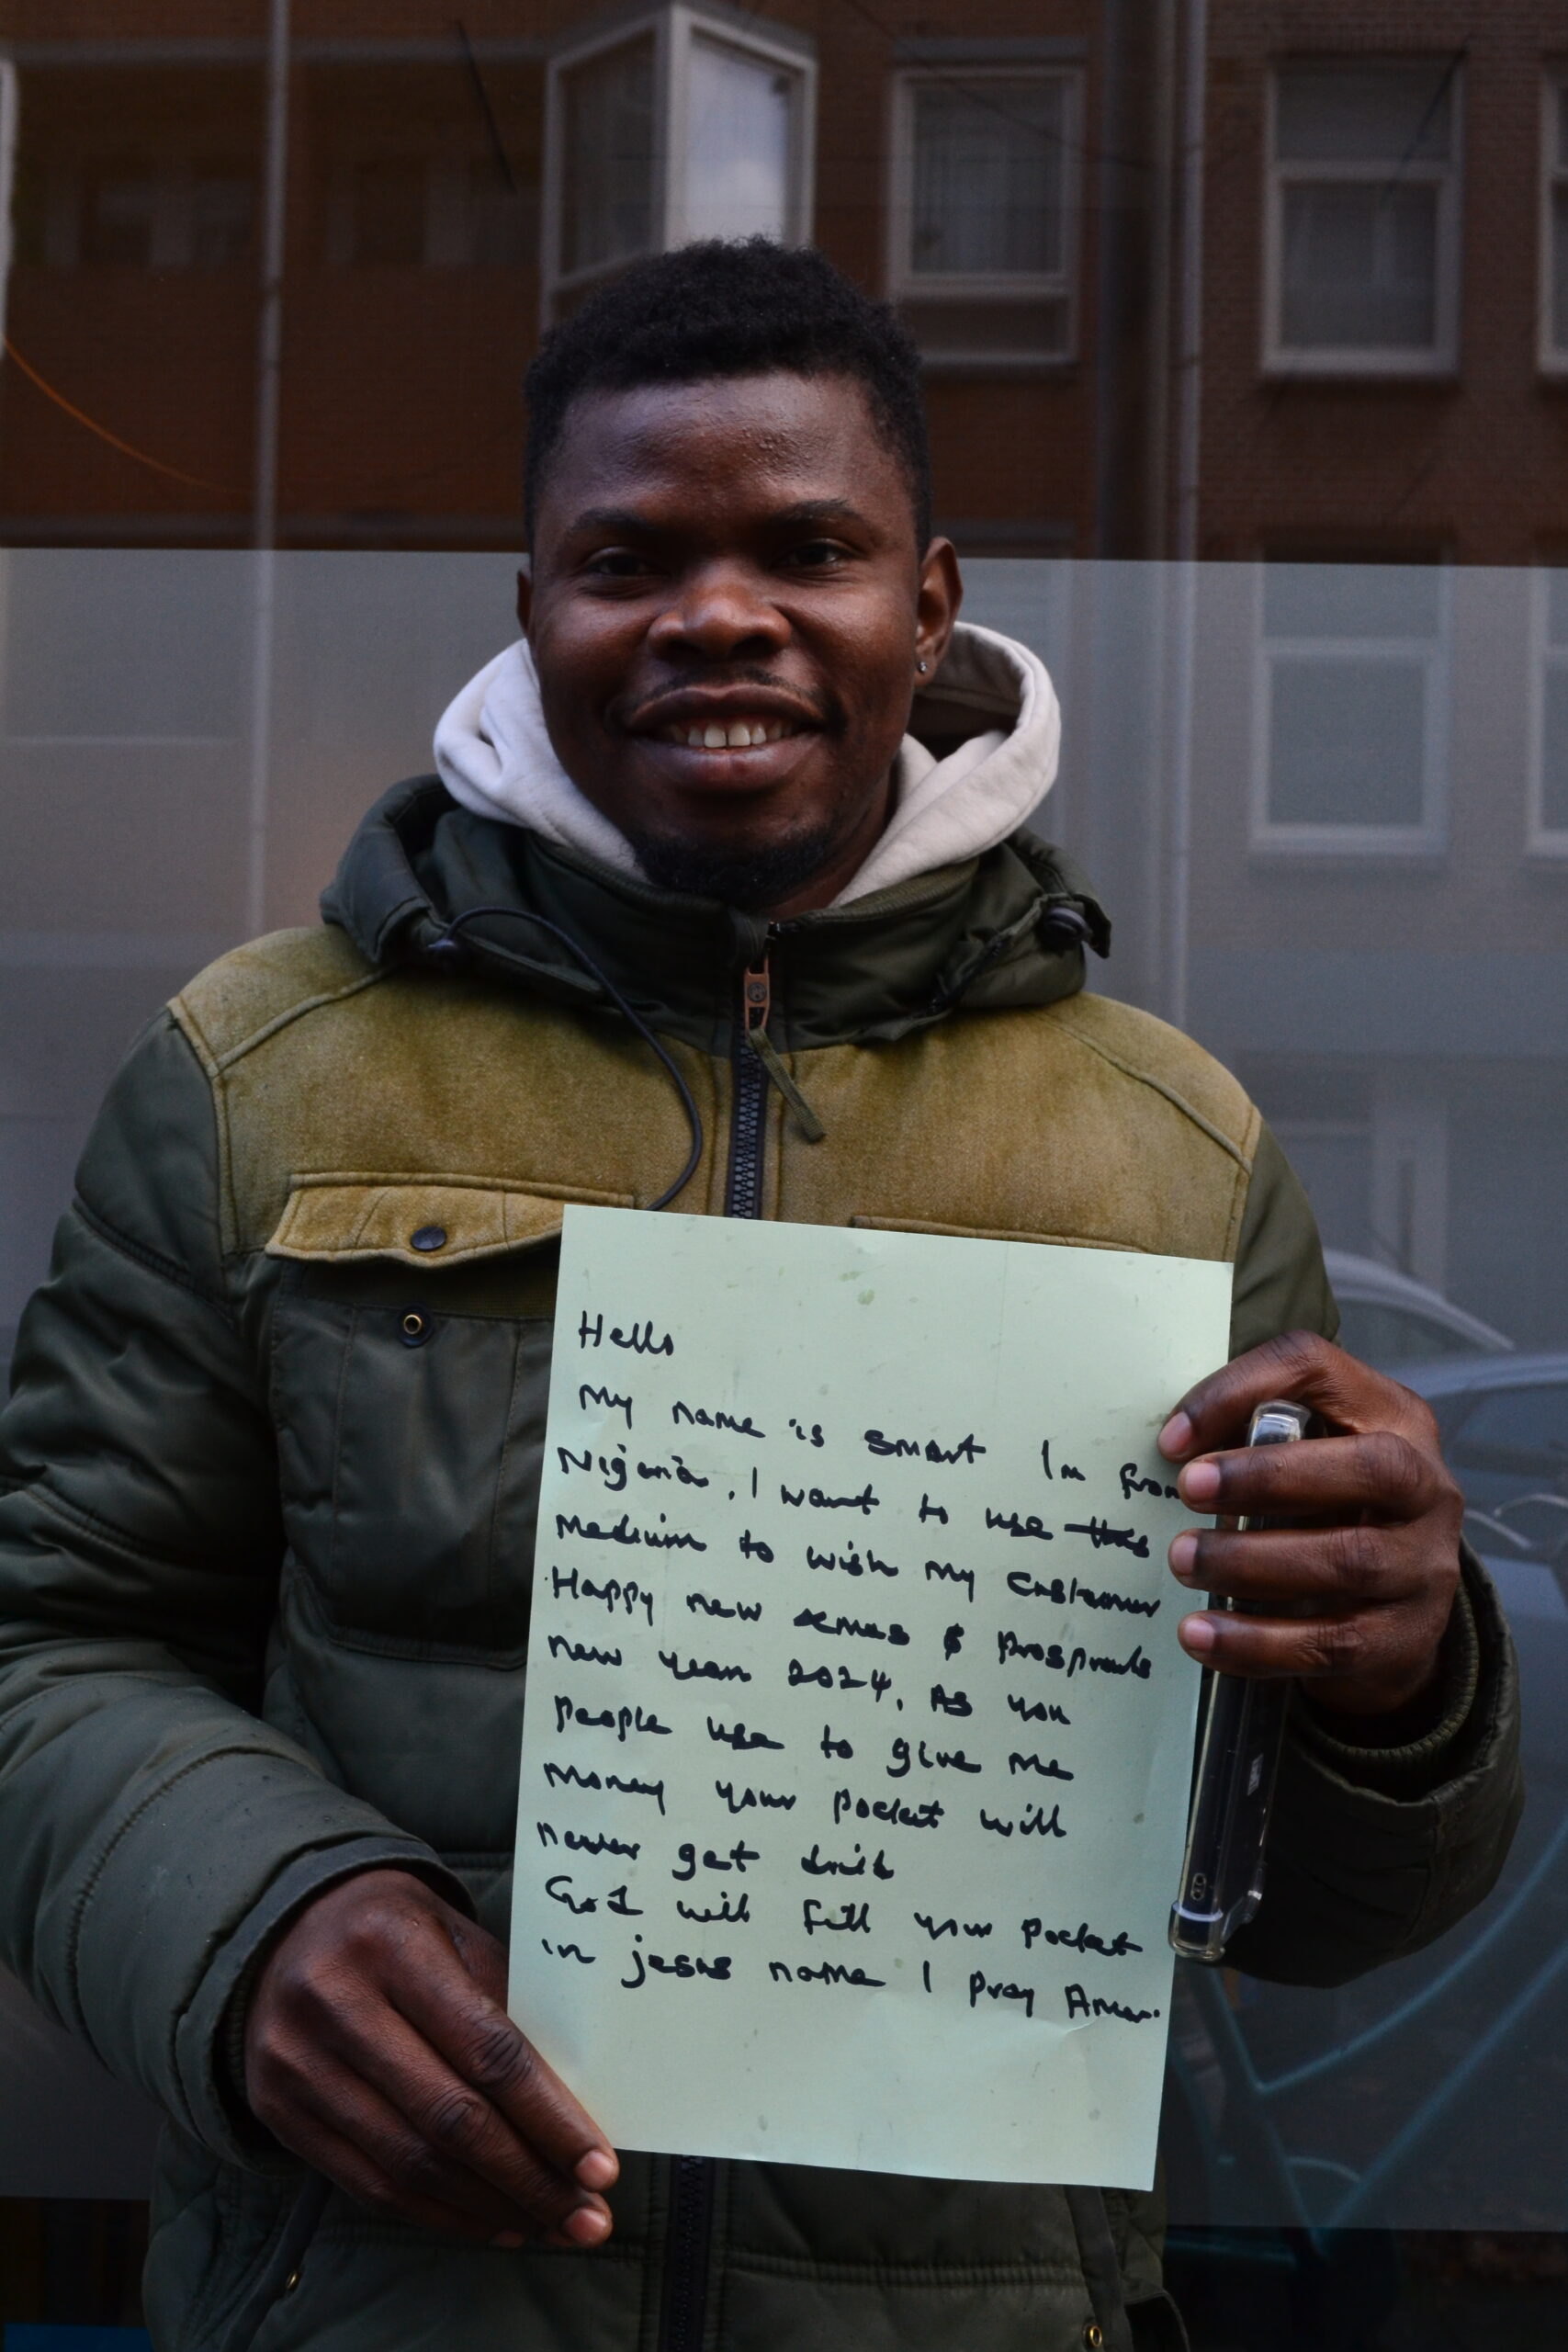 Hello
My name is smart Im from
Nigeria, I want to use this
medium to wish my customer
Happy new xmas &
new year 2024. As you
people use to give me
money your pocket will
never get
God will fill your pocket
in jesus name I pray Amen.